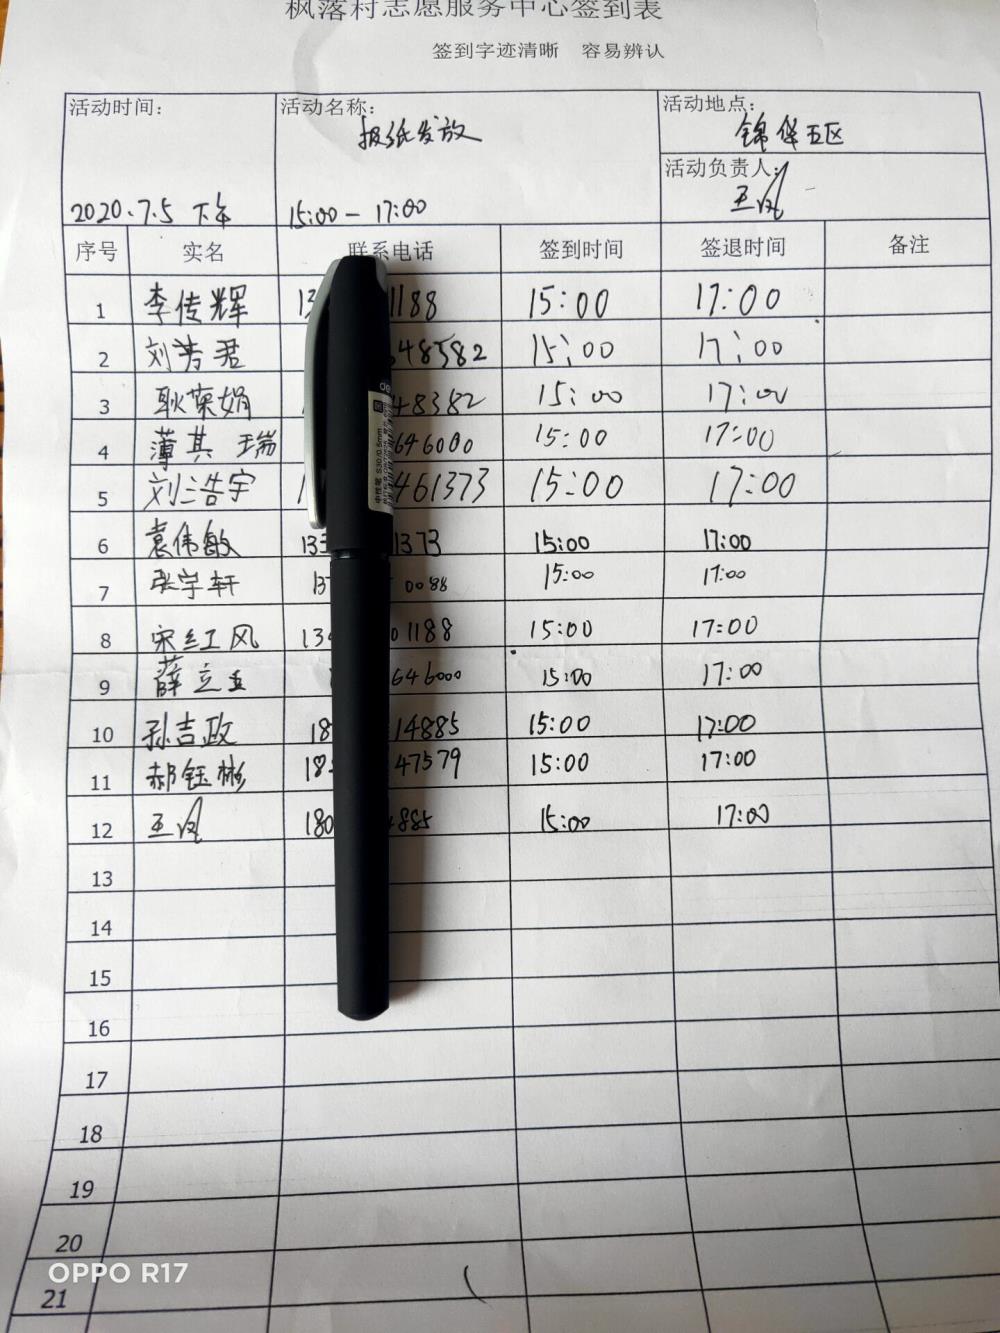 枫落村志愿服务中心签到表
签到字迹清晰 容易辨认
活动时间: 活动名称: 活动地点:
报纸发放 锦华五区
活动负责人:
王凤
2020.7.5 下午 15:00 - 17:00
序号 实名 联系电话 签到时间 签退时间 备注
1 李传辉 13 1188 15:00 17:00
2 刘芳君 48582 15:00 17:00
3 耿荣娟 48382 15:00 17:00
4 薄其瑞 646000 15:00 17:00
5 刘浩宇 461373 15:00 17:00
6 袁伟敏 133 1373 15:00 17:00
7 张宇轩 13 0088 15:00 17:00
8 宋红风 13 01188 15:00 17:00
9 薛立 646000 15:00 17:00
10 孙吉政 18 14885 15:00 17:00
11 郝钰彬 18 47579 15:00 17:00
12 王凤 180 4885 15:00 17:00
13
14
15
16
17
18
19
20
21
de
中性笔 S30/0.5mm
OPPO R17